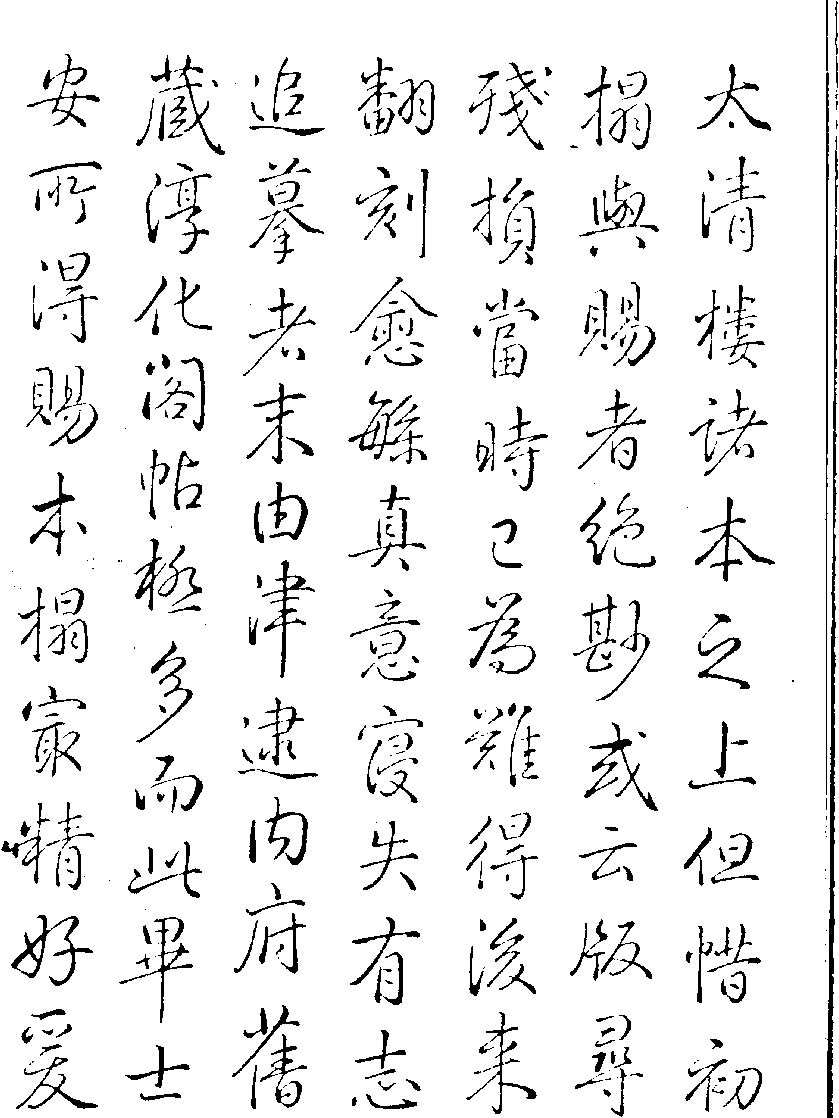 太清樓諸本之上但惜初
搨與賜者絶尠或云版尋
殘損當時已為難得後来
翻刻愈緐真意寖失有志
追摹者末由津逮内府舊
蔵淳化閣帖極多而此畢士
安所得賜本搨㝡精好爰